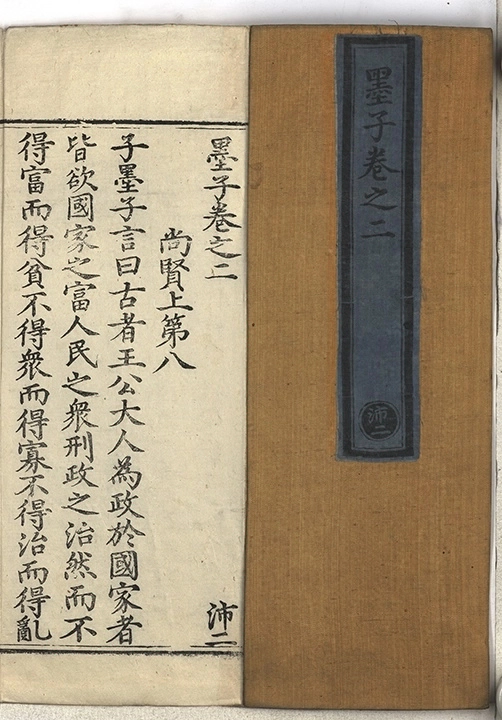 墨子卷之二
沛二
墨子卷之二
沛二
尚賢上第八
子墨子言曰古者王公大人為政於國家者
皆欲國家之富人民之衆刑政之治然而不
得富而得貧不得衆而得寡不得治而得亂